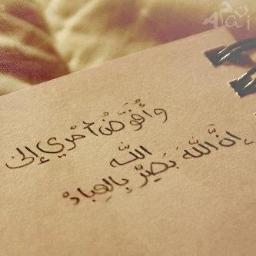 وَأُفَوِّضُ أَمْرِي إِلَى
الله
إِنَّ اللَّهَ بَصِيرٌ بِالعِبَادْ